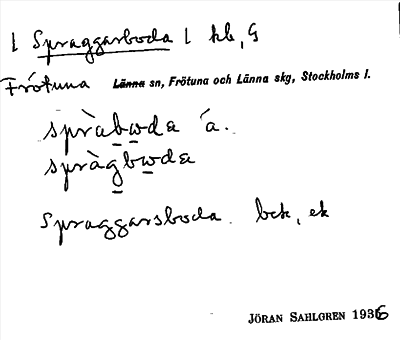 [ Spraggarboda ] kb, G
Frötuna Länna sn, Frötuna och Länna skg, Stockholms l.
spràbωda
spràgbωda
Spraggarsboda. bck, ek
JÖRAN SAHLGREN 1936